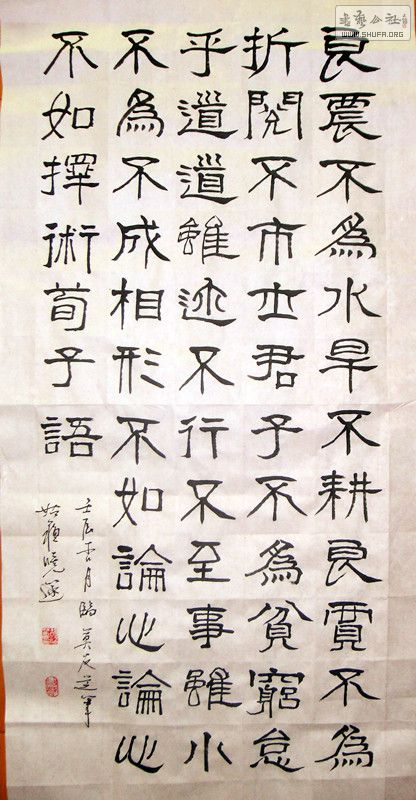 良農不為水旱不耕良賈不為
折閱不市士君子不為貧窮怠
乎道道雖迩不行不至事雖小
不為不成相形不如論心論心
不如擇術荀子語
壬辰月臨莫友芝筆
书艺公社
WWW.SHUFA.ORG